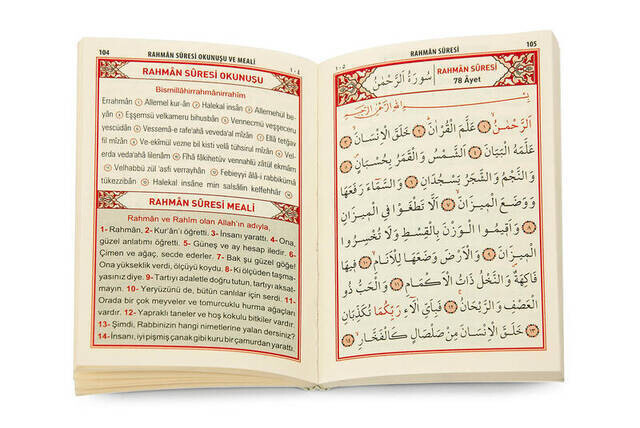 104 RAHMÂN SÛRESİ OKUNUŞU VE MEALİ ١٠٤
RAHMÂN SÛRESİ OKUNUŞU
Bismillâhirrahmânirrahîm
Errahmân ① Allemel kur-ân ② Halekal insân ③ Allemehül be-
yân ④ Eşşemsü velkameru bihusbân ⑤ Vennecmü veşşeceru
yescüdân ⑥ Vessemâ-e rafe'ahâ vevada'al mîzân ⑦ Ellâ tetğav
fil mîzân ⑧ Ve-ekîmül vezne bil kisti velâ tühsirul mîzân ⑨ Vel-
erda veda'ahâ lilenâm ⑩ Fîhâ fâkihetüv vennahlü zâtül ekmâm
⑪ Velhabbü zül 'asfi verrayhân ⑫ Febieyyi âlâ-i rabbikümâ
tükezzibân ⑬ Halekal insâne min salsâlin kelfehhâr ⑭
RAHMÂN SÛRESİ MEALİ
Rahmân ve Rahîm olan Allah'ın adıyla,
1- Rahmân, 2- Kur'ânı öğretti. 3- İnsanı yarattı. 4- Ona,
güzel anlatımı öğretti. 5- Güneş ve ay hesap iledir. 6-
Çimen ve ağaç, secde ederler. 7- Bak şu güzel göğe!
Ona yükseklik verdi, ölçüyü koydu. 8- Ki ölçüden taşma-
yasınız diye. 9- Tartıyı adaletle doğru tutun, tartıyı aksat-
mayın. 10- Yeryüzünü de, bütün canlılar için serdi. 11-
Orada bir çok meyveler ve tomurcuklu hurma ağaçları
vardır. 12- Yapraklı taneler ve hoş kokulu bitkiler vardır.
13- Şimdi, Rabbinizin hangi nimetlerine yalan dersiniz?
14- İnsanı, iyi pişmiş çanak gibi kuru bir çamurdan yarattı.
١٠٥ RAHMÂN SÛRESİ 105
سُورَةُ الرَّحْمٰنِ RAHMÂN SÛRESİ
78 Âyet
بِسْمِ اللهِ الرَّحْمٰنِ الرَّحِيمِ
اَلرَّحْمٰنُ ﴿١﴾ عَلَّمَ الْقُرْاٰنَ ﴿٢﴾ خَلَقَ الْاِنْسَانَ ﴿٣﴾
عَلَّمَهُ الْبَيَانَ ﴿٤﴾ اَلشَّمْسُ وَالْقَمَرُ بِحُسْبَانٍ ﴿٥﴾
وَالنَّجْمُ وَالشَّجَرُ يَسْجُدَانِ ﴿٦﴾ وَالسَّمَاءَ رَفَعَهَا
وَوَضَعَ الْمِيزَانَ ﴿٧﴾ اَلَّا تَطْغَوْا فِي الْمِيزَانِ
﴿٨﴾ وَاَقِيمُوا الْوَزْنَ بِالْقِسْطِ وَلَا تُخْسِرُوا
الْمِيزَانَ ﴿٩﴾ وَالْاَرْضَ وَضَعَهَا لِلْاَنَامِ ﴿١٠﴾ فِيهَا
فَاكِهَةٌ وَالنَّخْلُ ذَاتُ الْاَكْمَامِ ﴿١١﴾ وَالْحَبُّ ذُو
الْعَصْفِ وَالرَّيْحَانُ ﴿١٢﴾ فَبِاَيِّ اٰلَاءِ رَبِّكُمَا تُكَذِّبَانِ
﴿١٣﴾ خَلَقَ الْاِنْسَانَ مِنْ صَلْصَالٍ كَالْفَخَّارِ ﴿١٤﴾